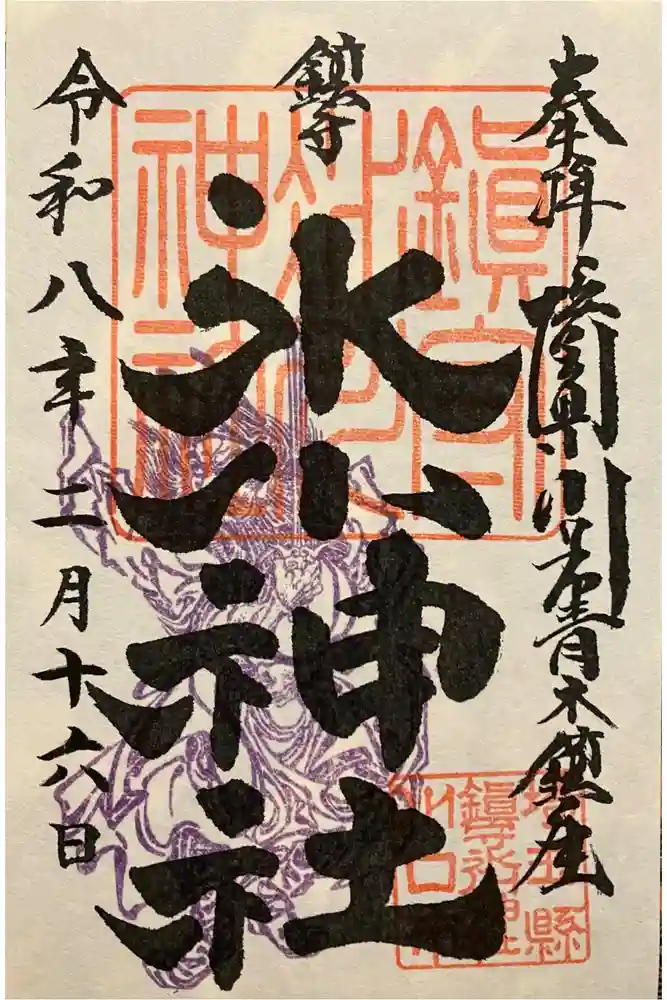 奉拝 埼玉県川口市青木鎮座
鎮守
氷川神社
令和八年二月十六日
埼玉縣
鎮守氷川神社
川口市